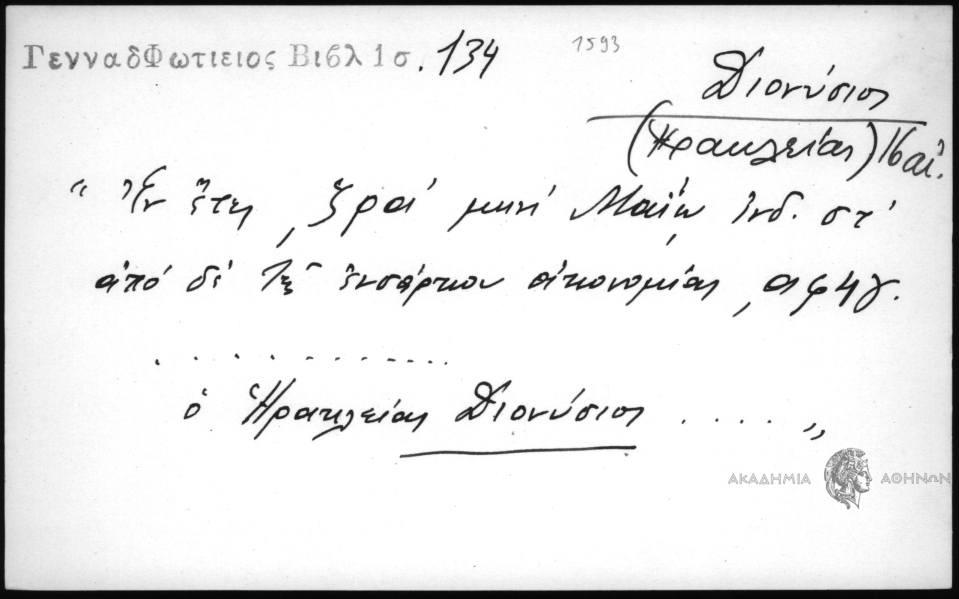 ΓενναδΦωτιειος Βιβλ 1σ. 134
1593
Διονύσιος
(Ηρακλείας) 16 αἰ.
“ Ἐν ἔτει ͵ζραʹ μηνὶ Μαΐῳ ἰνδ. στʹ
ἀπὸ δὲ τῆς ἐνσάρκου οἰκονομίας ͵αφϟγ.
. . . . . . . . . . . . .
ὁ Ἡρακλείας Διονύσιος . . . . . „
ΑΚΑΔΗΜΙΑ ΑΘΗΝΩΝ